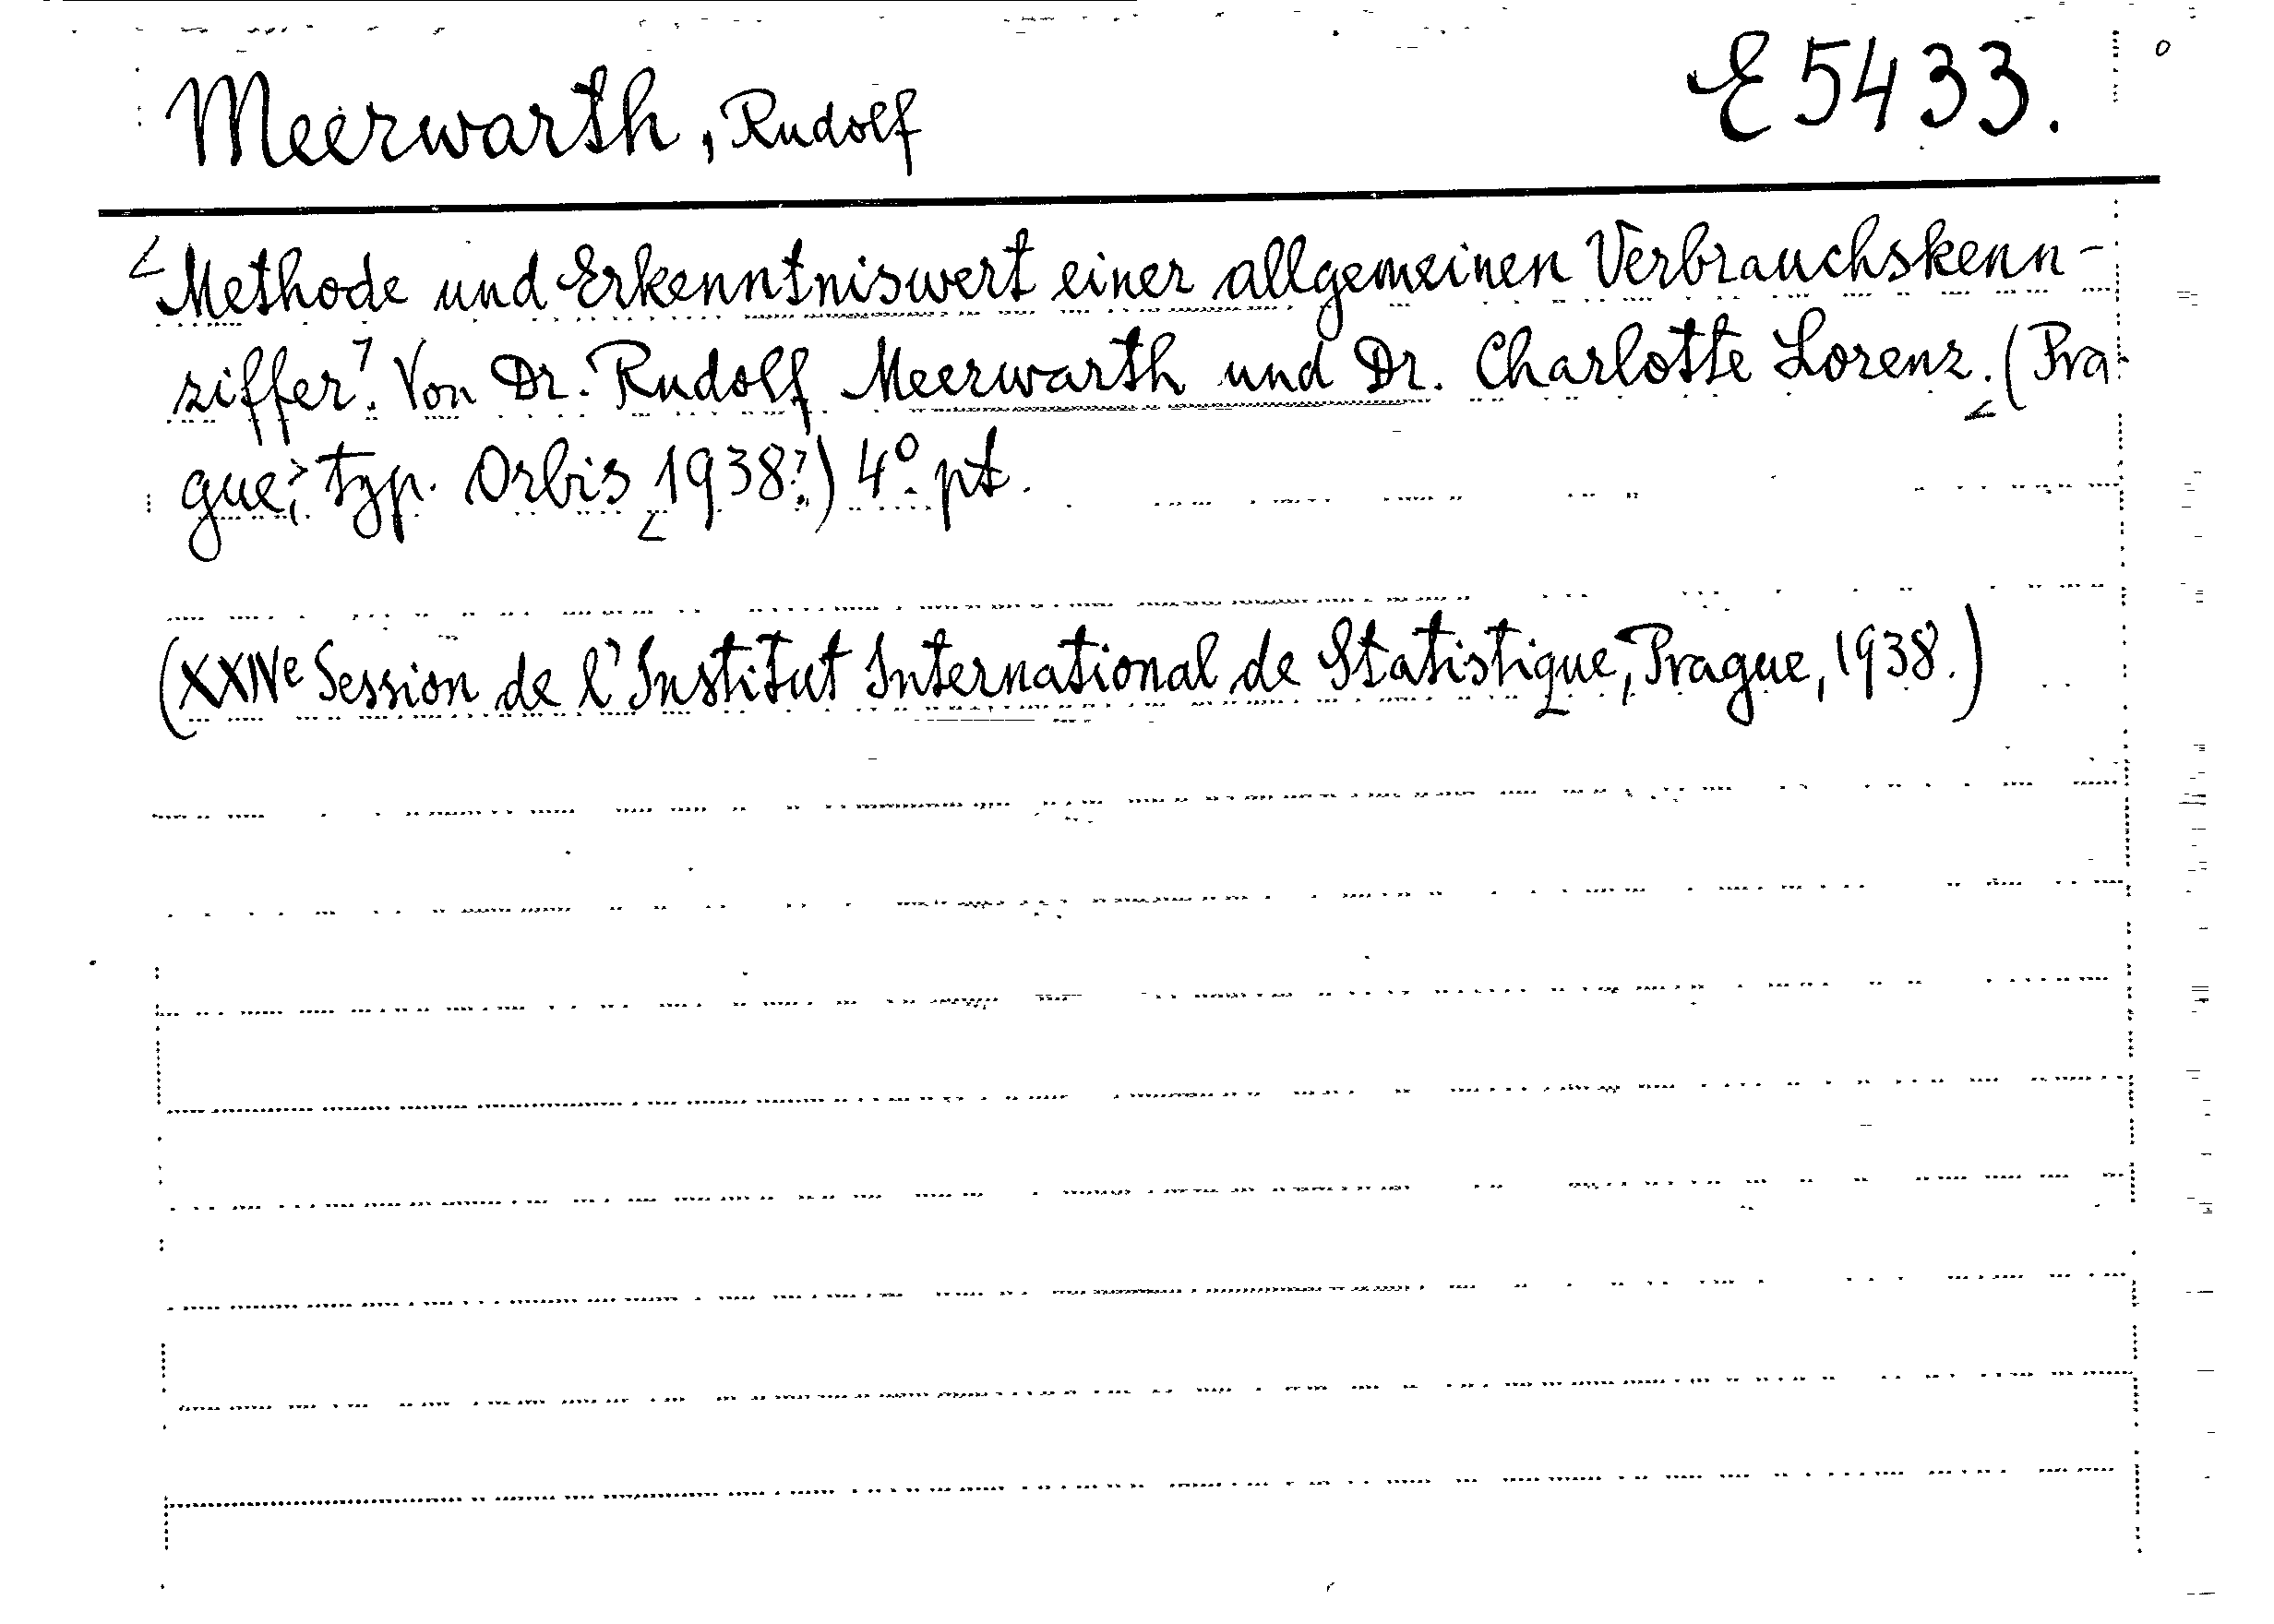 Meerwarth, Rudolf E 5433.
<Methode und Erkenntniswert einer allgemeinen Verbrauchskenn-
ziffer>. Von Dr. Rudolf Meerwarth und Dr. Charlotte Lorenz. (<Pra-
gue>; typ. Orbis <1938>.) 4° pt.
(XXIVe Session de l'Institut International de Statistique, Prague, 1938.)